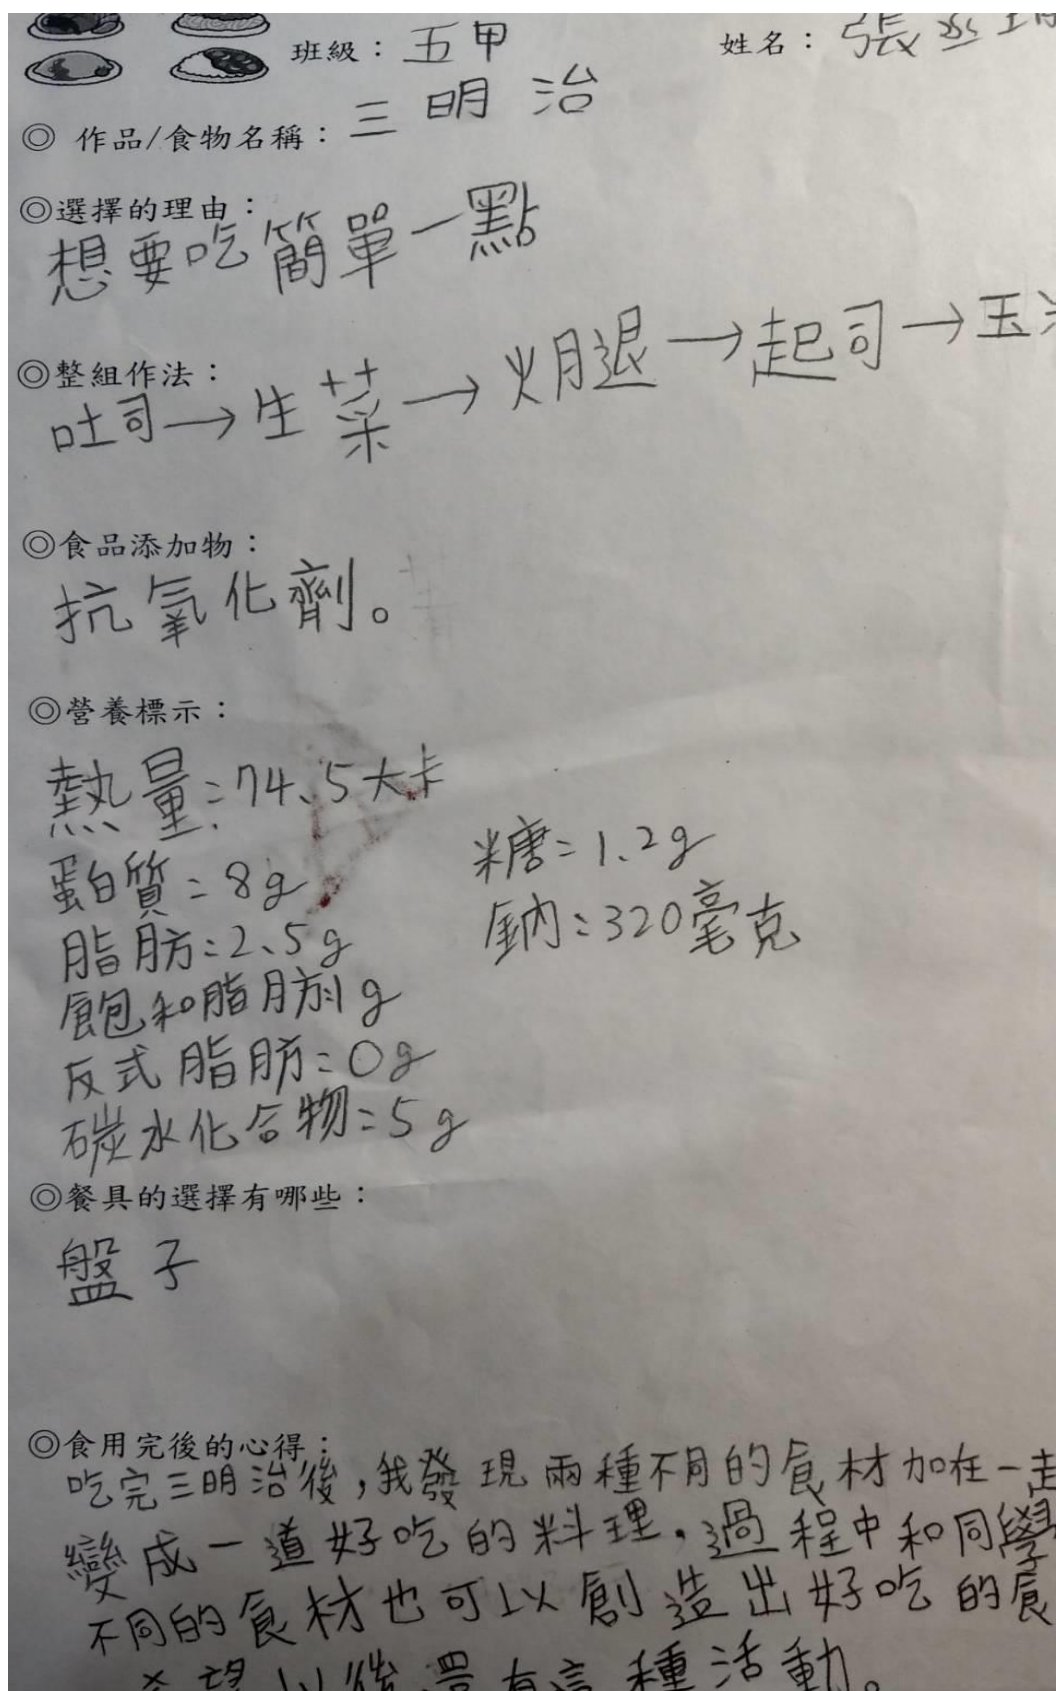 班級：五甲 姓名：張
◎ 作品/食物名稱：三明治
◎選擇的理由：
想要吃簡單一點
◎整組作法：
吐司→生菜→火腿→起司→玉
◎食品添加物：
抗氧化劑。
◎營養標示：
熱量：74、5大卡
蛋白質：8g
脂肪：2、5g
飽和脂肪1g
反式脂肪：0g
碳水化合物：5g
糖：1、2g
鈉：320毫克
◎餐具的選擇有哪些：
盤子
◎食用完後的心得：
吃完三明治後，我發現兩種不同的食材加在一起
變成一道好吃的料理，過程中和同學
不同的食材也可以創造出好吃的食
希望以後還有這種活動。